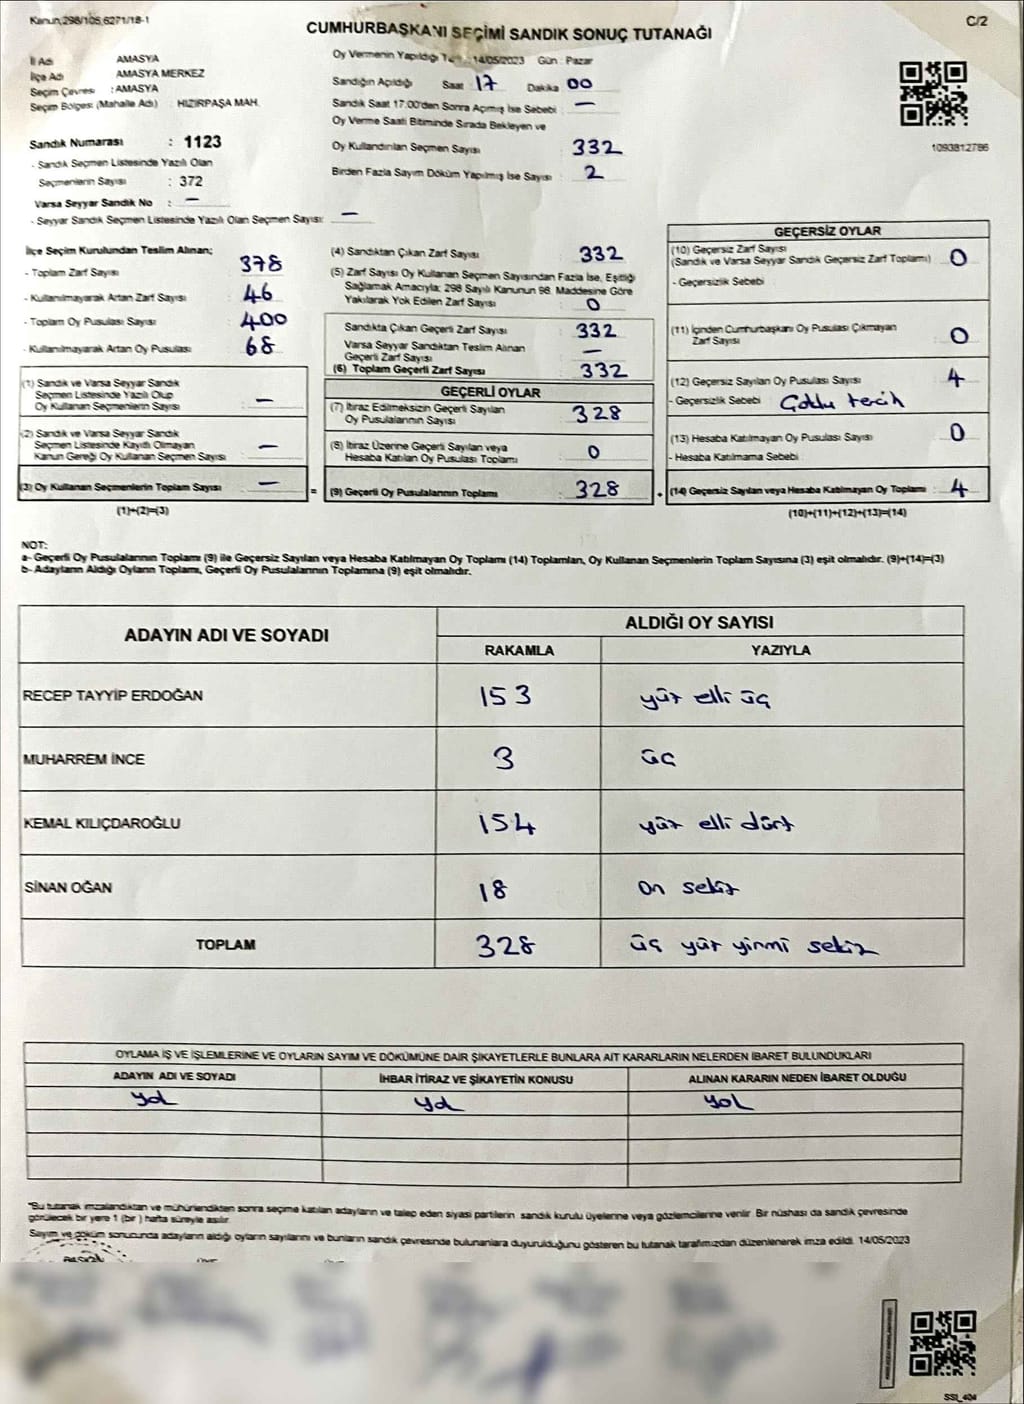 Kanun,298/105,6271/18-1
C/2
CUMHURBAŞKANI SEÇİMİ SANDIK SONUÇ TUTANAĞI
İl Adı AMASYA
İlçe Adı AMASYA MERKEZ
Seçim Çevresi : AMASYA
Seçim Bölgesi (Mahalle Adı) : HIZIRPAŞA MAH.
Oy Vermenin Yapıldığı 14/05/2023 Gün : Pazar
Sandığın Açıldığı Saat 17 Dakika 00
Sandık Saat 17:00'den Sonra Açımış İse Sebebi : —
Oy Verme Saati Bitiminde Sırada Bekleyen ve
Oy Kullandırılan Seçmen Sayısı 332
Birden Fazla Sayım Döküm Yapılmış İse Sayısı : 2
1093812786
Sandık Numarası : 1123
- Sandık Seçmen Listesinde Yazılı Olan
Seçmenlerin Sayısı : 372
Varsa Seyyar Sandık No : —
- Seyyar Sandık Seçmen Listesinde Yazılı Olan Seçmen Sayısı: —
İlçe Seçim Kurulundan Teslim Alınan;
- Toplam Zarf Sayısı : 378
- Kullanılmayarak Artan Zarf Sayısı : 46
- Toplam Oy Pusulası Sayısı : 400
- Kullanılmayarak Artan Oy Pusulası : 68
(1) Sandık ve Varsa Seyyar Sandık
Seçmen Listesinde Yazılı Olup
Oy Kullanan Seçmenlerin Sayısı : —
(2) Sandık ve Varsa Seyyar Sandık
Seçmen Listesinde Kayıtlı Olmayan
Kanun Gereği Oy Kullanan Seçmen Sayısı : —
(3) Oy Kullanan Seçmenlerin Toplam Sayısı : —
(1)+(2)=(3)
=
(4) Sandıktan Çıkan Zarf Sayısı : 332
(5) Zarf Sayısı Oy Kullanan Seçmen Sayısından Fazla İse, Eşitliği
Sağlamak Amacıyla; 298 Sayılı Kanunun 98. Maddesine Göre
Yakılarak Yok Edilen Zarf Sayısı : 0
Sandıkta Çıkan Geçerli Zarf Sayısı : 332
Varsa Seyyar Sandıktan Teslim Alınan
Geçerli Zarf Sayısı : —
(6) Toplam Geçerli Zarf Sayısı : 332
GEÇERLİ OYLAR
(7) İtiraz Edilmeksizin Geçerli Sayılan
Oy Pusulasının Sayısı : 328
(8) İtiraz Üzerine Geçerli Sayılan veya
Hesaba Katılan Oy Pusulası Toplamı : 0
(9) Geçerli Oy Pusulalarının Toplamı : 328
+
GEÇERSİZ OYLAR
(10) Geçersiz Zarf Sayısı
(Sandık ve Varsa Seyyar Sandık Geçersiz Zarf Toplamı) : 0
- Geçersizlik Sebebi
(11) İçinden Cumhurbaşkanı Oy Pusulası Çıkmayan
Zarf Sayısı : 0
(12) Geçersiz Sayılan Oy Pusulası Sayısı : 4
- Geçersizlik Sebebi Çoklu tercih
(13) Hesaba Katılmayan Oy Pusulası Sayısı : 0
- Hesaba Katılmama Sebebi
(14) Geçersiz Sayılan veya Hesaba Katılmayan Oy Toplamı : 4
(10)+(11)+(12)+(13)=(14)
NOT:
a- Geçerli Oy Pusulalarının Toplamı (9) ile Geçersiz Sayılan veya Hesaba Katılmayan Oy Toplamı (14) Toplamları, Oy Kullanan Seçmenlerin Toplam Sayısına (3) eşit olmalıdır. (9)+(14)=(3)
b- Adayların Aldığı Oyların Toplamı, Geçerli Oy Pusulalarının Toplamına (9) eşit olmalıdır.
ADAYIN ADI VE SOYADI
ALDIĞI OY SAYISI
RAKAMLA YAZIYLA
RECEP TAYYİP ERDOĞAN 153 yüz elli üç
MUHARREM İNCE 3 üç
KEMAL KILIÇDAROĞLU 154 yüz elli dört
SİNAN OĞAN 18 on sekiz
TOPLAM 328 üç yüz yirmi sekiz
OYLAMA İŞ VE İŞLEMLERİNE VE OYLARIN SAYIM VE DÖKÜMÜNE DAİR ŞİKAYETLERLE BUNLARA AİT KARARLARIN NELERDEN İBARET BULUNDUKLARI
ADAYIN ADI VE SOYADI İHBAR İTİRAZ VE ŞİKAYETİN KONUSU ALINAN KARARIN NEDEN İBARET OLDUĞU
yok yok yok
*Bu tutanak imzalandıktan ve mühürlendikten sonra seçime katılan adayların ve talep eden siyasi partilerin sandık kurulu üyelerine veya gözlemcilerine verilir. Bir nüshası da sandık çevresinde
görülecek bir yere 1 (bir) hafta süreyle asılır.
Sayım ve döküm sonucunda adayların aldığı oyların sayılarını ve bunların sandık çevresinde bulunanlara duyurulduğunu gösteren bu tutanak tarafımızdan düzenlenerek imza edildi. 14/05/2023
SSI_404